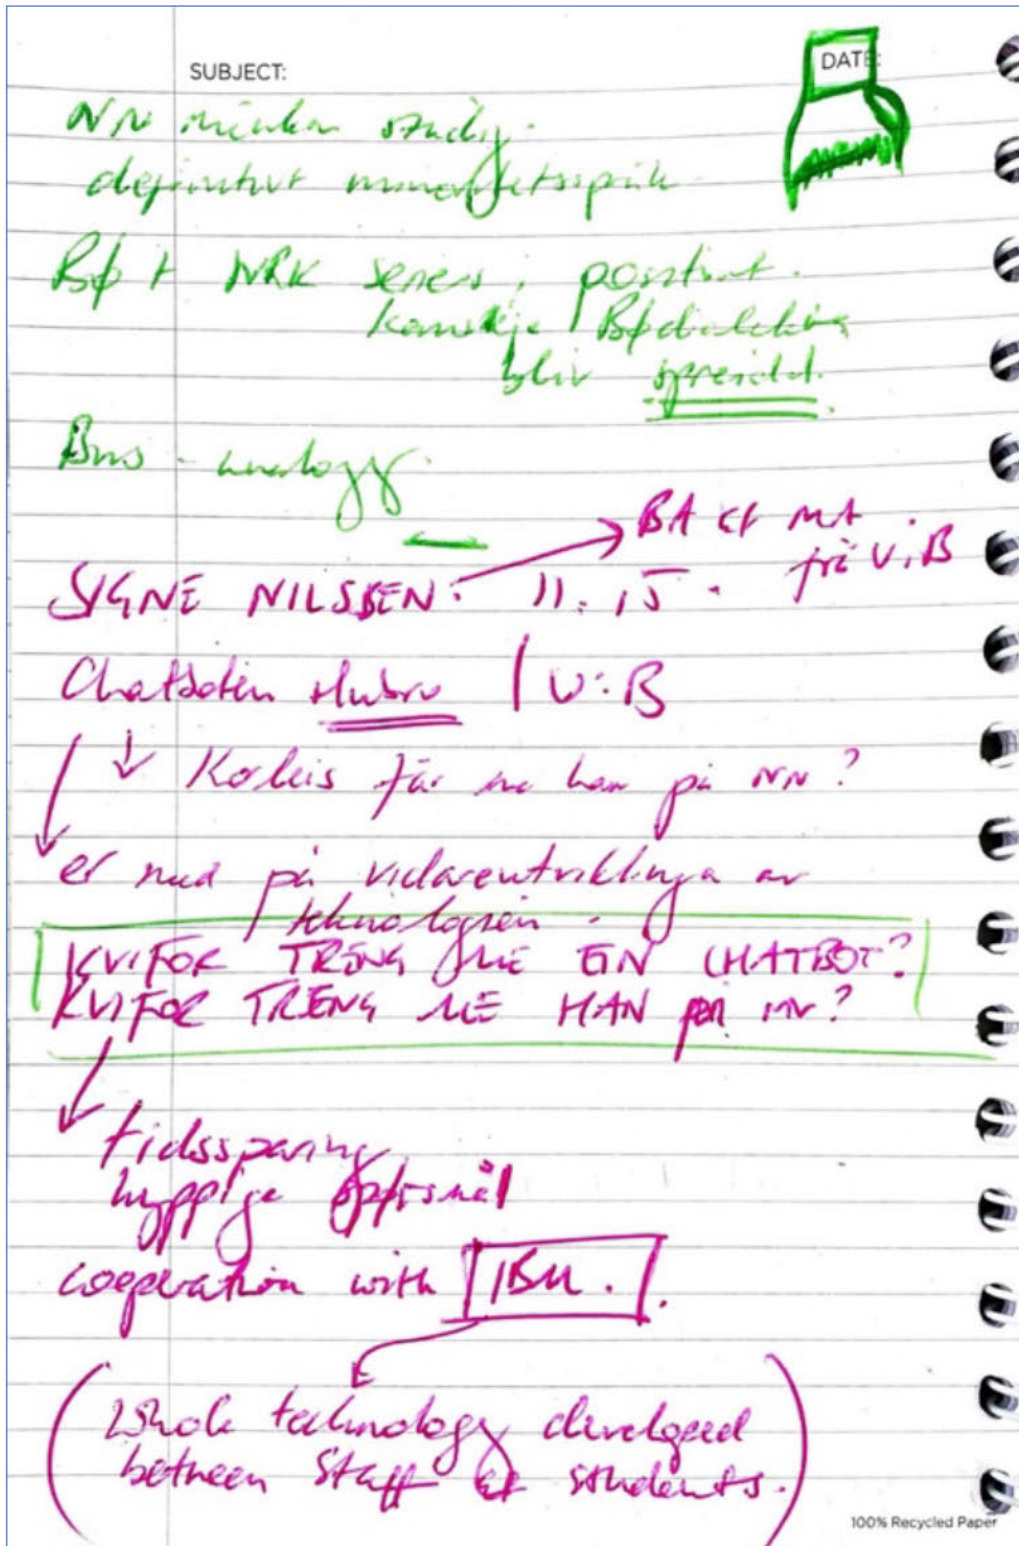 SUBJECT:
DATE:
NN minkar stadig.
definitivt minoritetsspråk
Bø + NRK series, positivt.
Kanskje Bødialekten
bliv spreidd.
Bus - analogy.
BA et MA
frå UiB
SIGNE NILSSEN: 11.15.
Chatboten Hubro | UiB
Korleis får me han på NN?
er med på vidareutviklinga av
teknologien.
KVIFOR TRENG ME EIN CHATBOT?
KVIFOR TRENG ME HAN PÅ NN?
tidssparing
hyppige spørsmål
cooperation with IBM.
(Whole technology developed
between Staff et students.)
100% Recycled Paper